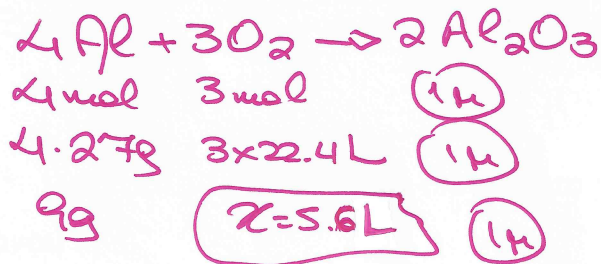 4Al + 3O₂ → 2Al₂O₃
4mol 3mol 1м
4·27g 3x22.4L 1м
9g x=5.6L 1м